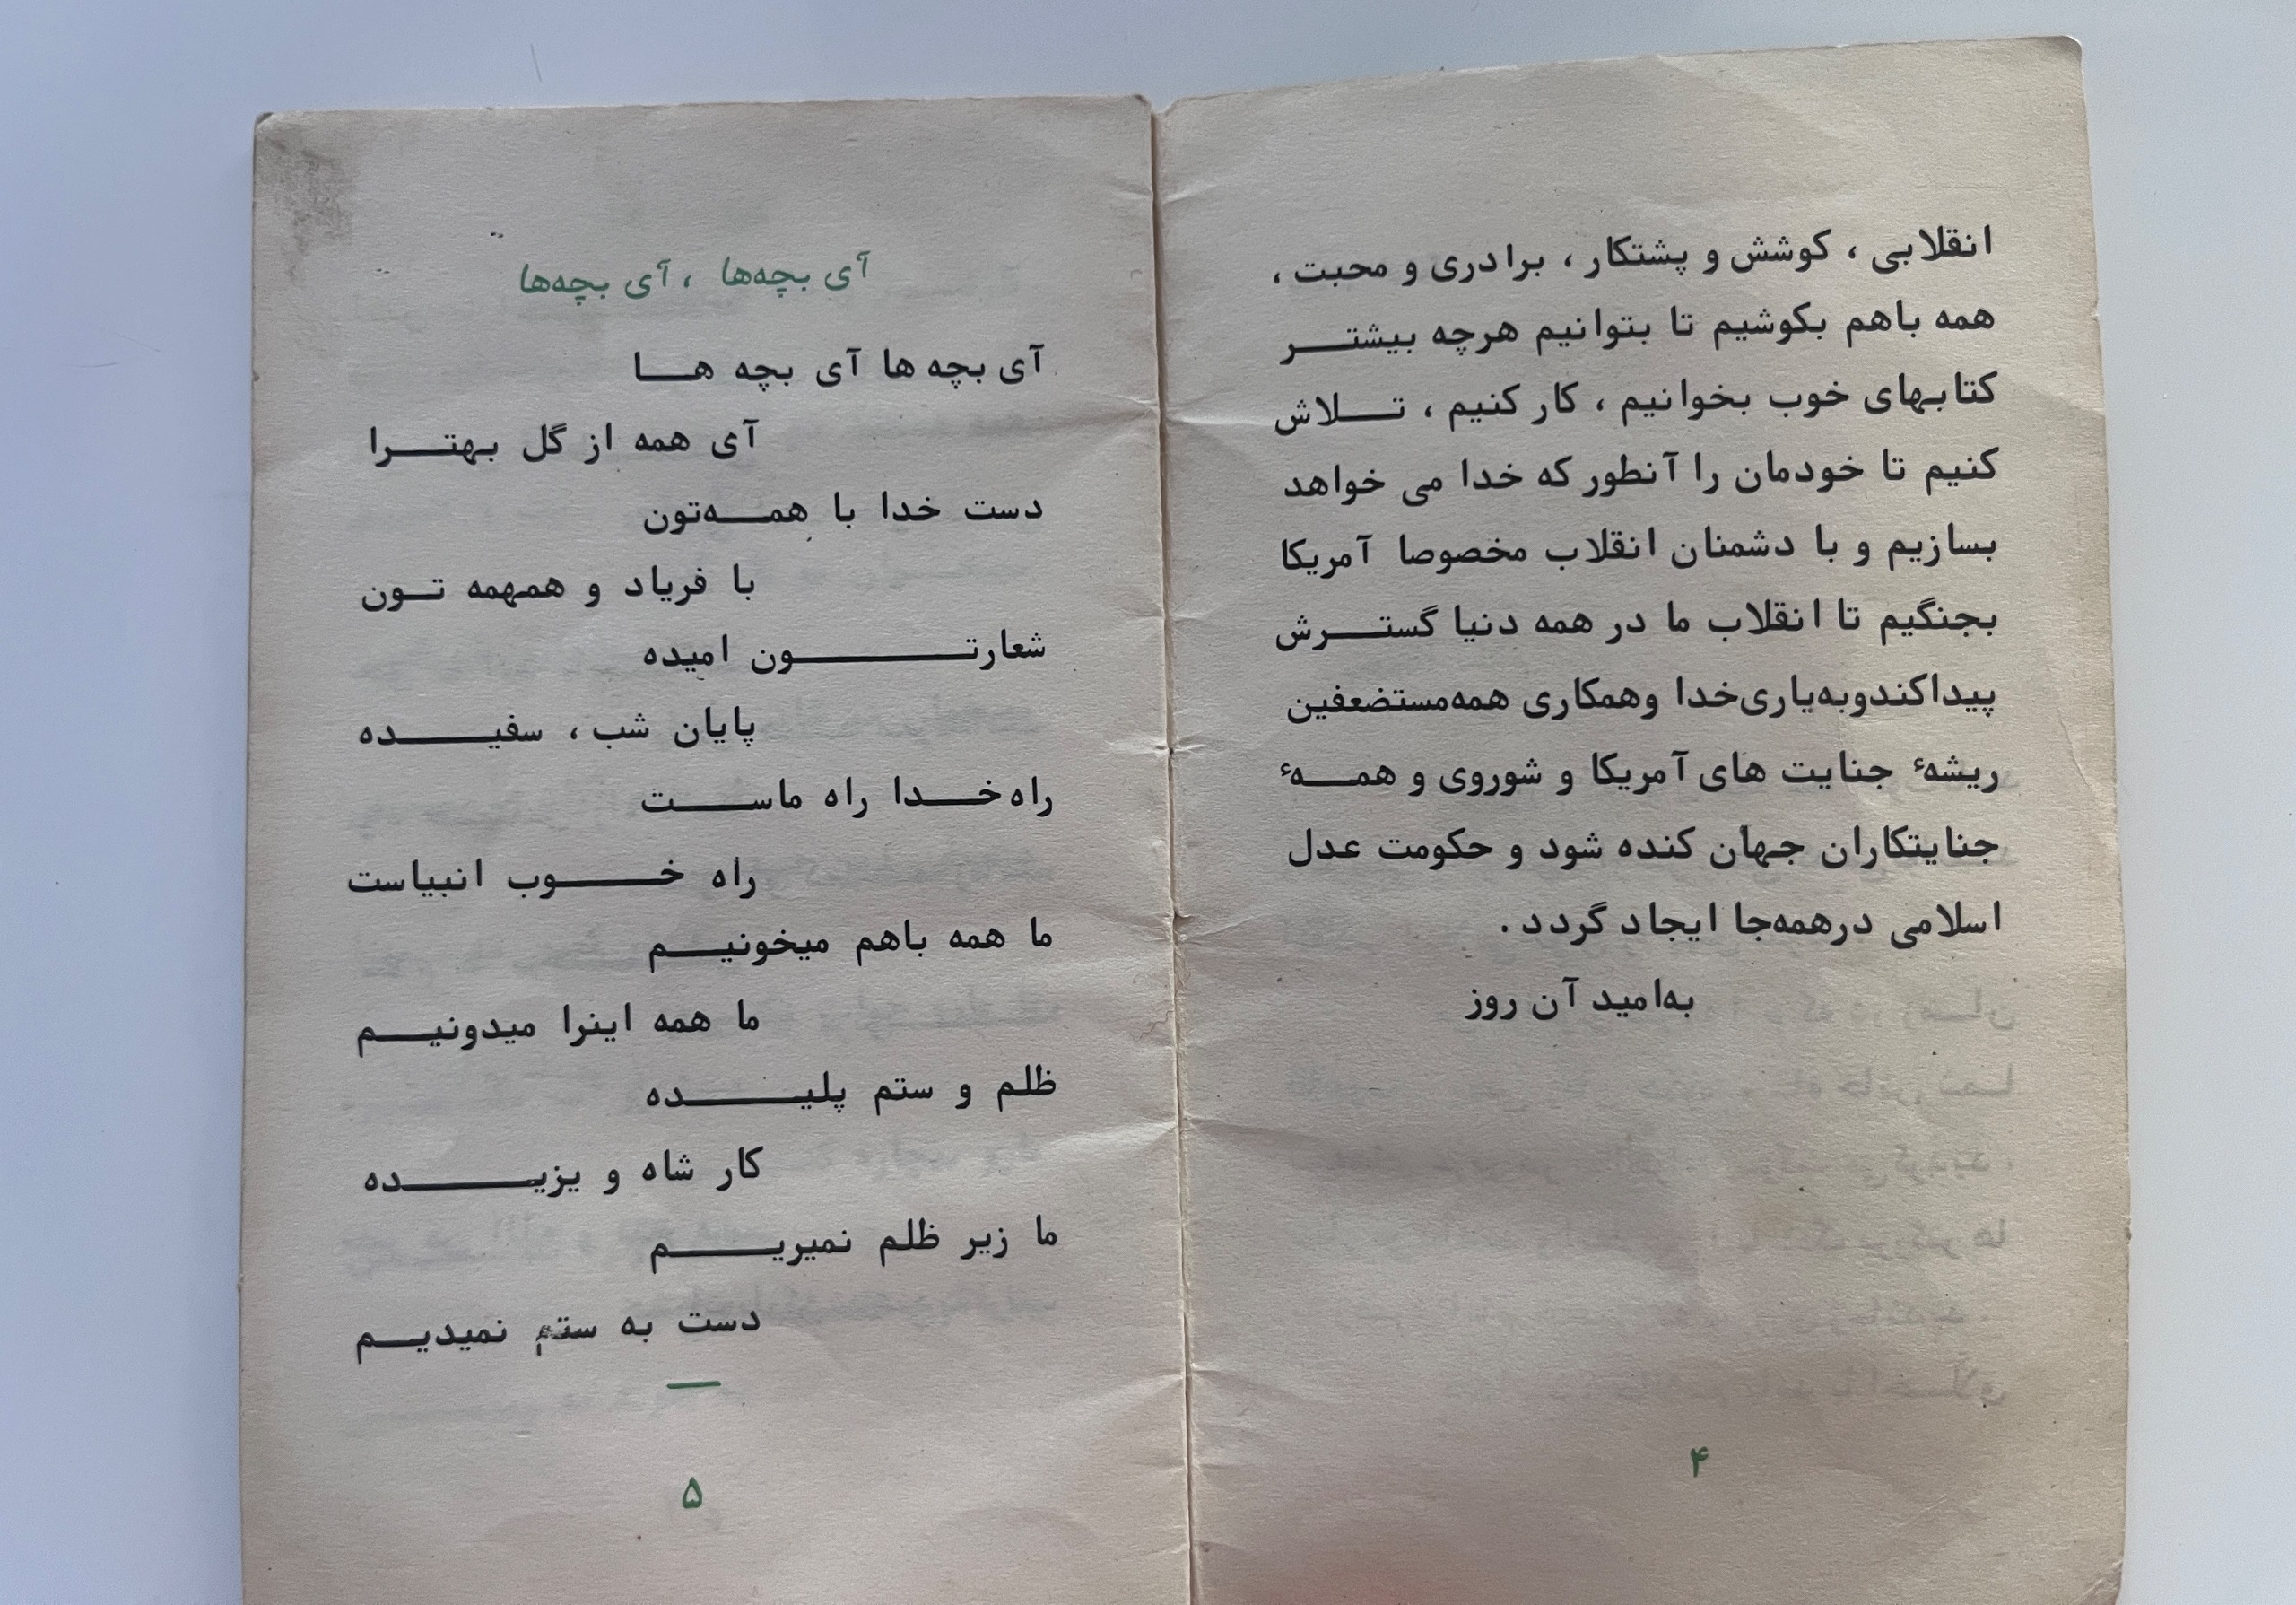 انقلابی ، کوشش و پشتکار ، برادری و محبت ،
همه باهم بکوشیم تا بتوانیم هرچه بیشتر
کتابهای خوب بخوانیم ، کار کنیم ، تلاش
کنیم تا خودمان را آنطور که خدا می خواهد
بسازیم و با دشمنان انقلاب مخصوصا آمریکا
بجنگیم تا انقلاب ما در همه دنیا گسترش
پیداکندوبه‌یاری‌خدا وهمکاری همه‌مستضعفین
ریشهٔ جنایت های آمریکا و شوروی و همهٔ
جنایتکاران جهان کنده شود و حکومت عدل
اسلامی درهمه‌جا ایجاد گردد .
به‌امید آن روز
۴
آی بچه‌ها ، آی بچه‌ها
آی بچه ها آی بچه ها
آی همه از گل بهترا
دست خدا با همه‌تون
با فریاد و همهمه تون
شعارتون امیده
پایان شب ، سفیده
راه خدا راه ماست
راه خوب انبیاست
ما همه باهم میخونیم
ما همه اینرا میدونیم
ظلم و ستم پلیده
کار شاه و یزیده
ما زیر ظلم نمیریم
دست به ستم نمیدیم
۵